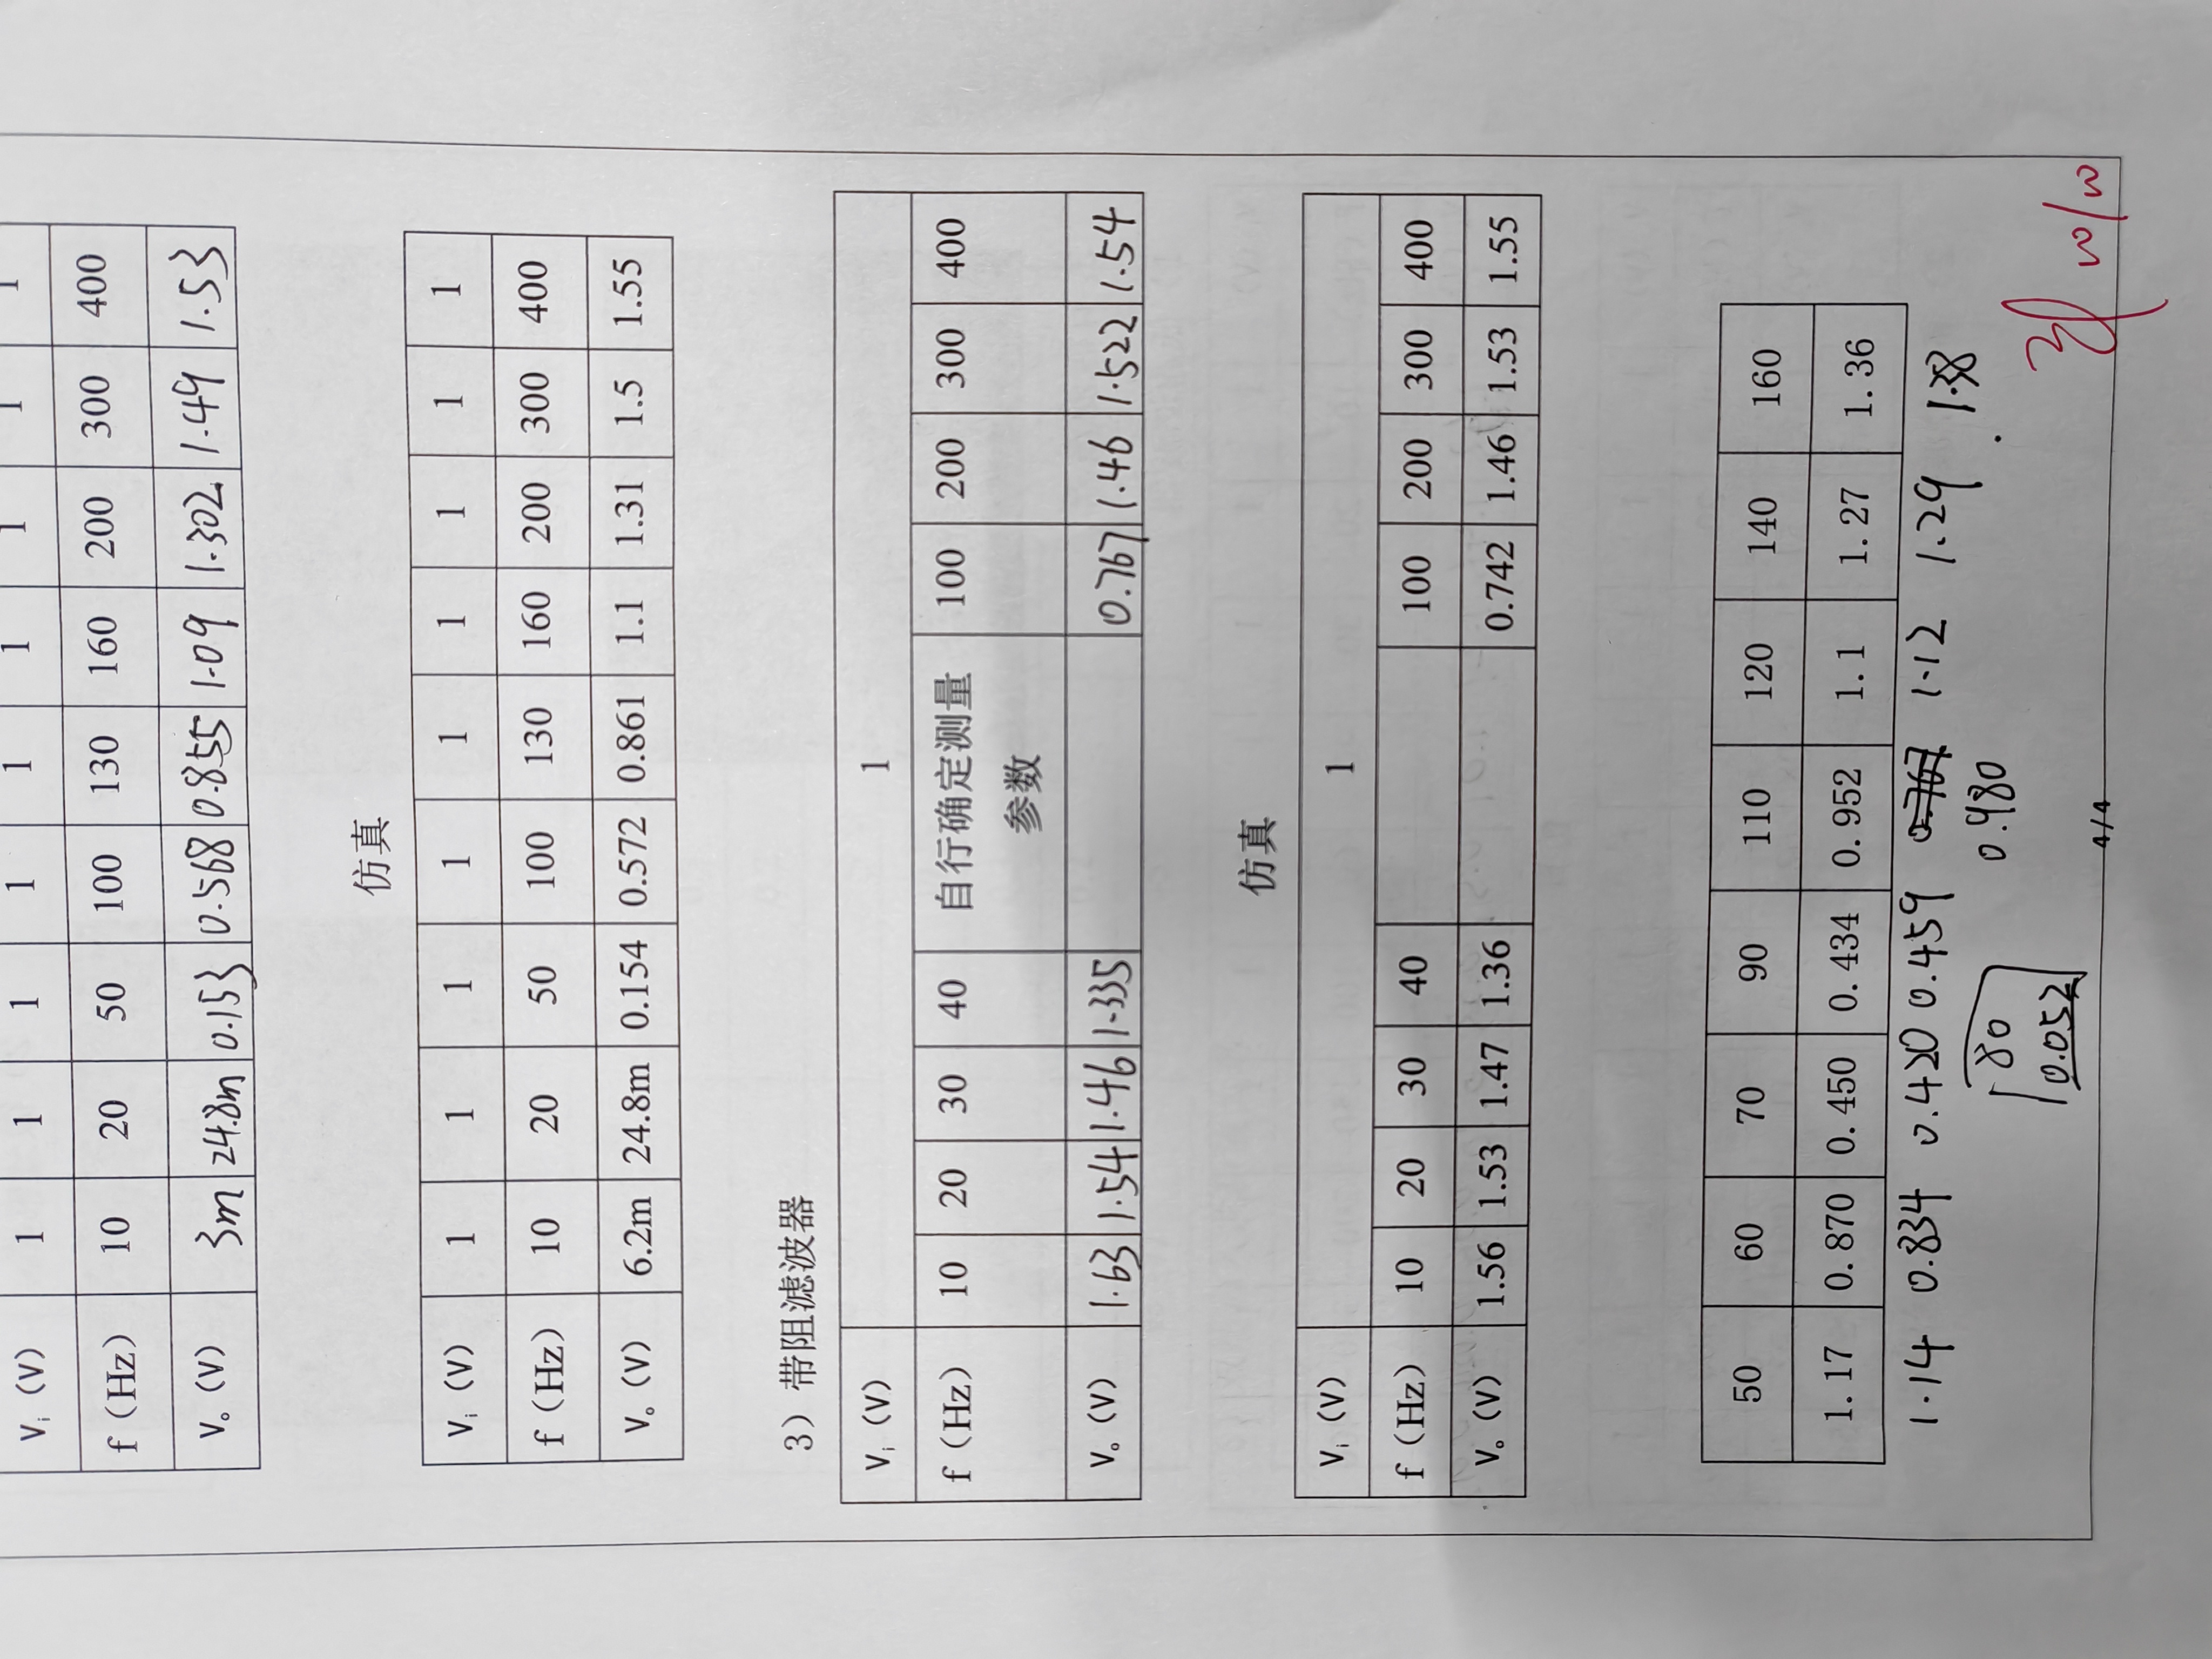 Vi (V) 1 1 1 1 1 1 1 1 1
f (Hz) 10 20 50 100 130 160 200 300 400
Vo (V) 3m 24.8m 0.153 0.568 0.855 1.09 1.302 1.49 1.53
仿真
Vi (V) 1 1 1 1 1 1 1 1 1
f (Hz) 10 20 50 100 130 160 200 300 400
Vo (V) 6.2m 24.8m 0.154 0.572 0.861 1.1 1.31 1.5 1.55
3）带阻滤波器
Vi (V) 1
f (Hz) 10 20 30 40 自行确定测量 100 200 300 400
参数
Vo (V) 1.63 1.54 1.46 1.335 0.767 1.46 1.522 1.54
仿真
Vi (V) 1
f (Hz) 10 20 30 40 100 200 300 400
Vo (V) 1.56 1.53 1.47 1.36 0.742 1.46 1.53 1.55
50 60 70 90 110 120 140 160
1.17 0.870 0.450 0.434 0.952 1.1 1.27 1.36
1.14 0.834 0.420 0.459 0.767 1.12 1.29 1.38
80 0.980
0.052
4/4